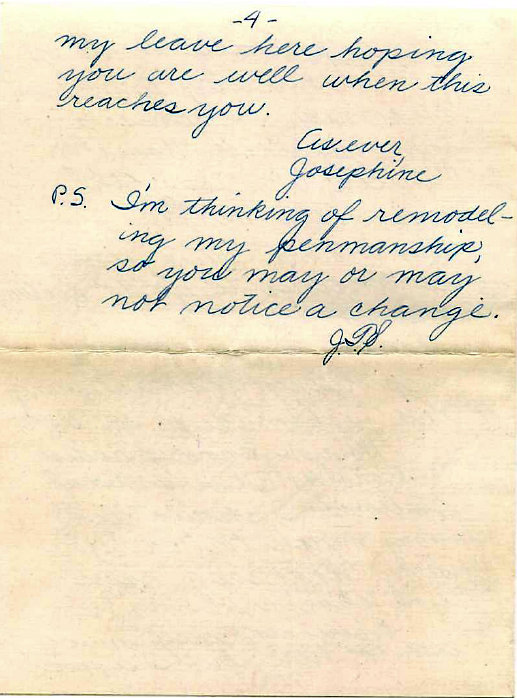 -4-
my leave here hoping
you are well when this
reaches you.
As ever,
Josephine
P.S. I'm thinking of remodel-
ing my penmanship,
so you may or may
not notice a change.
J.P.S.